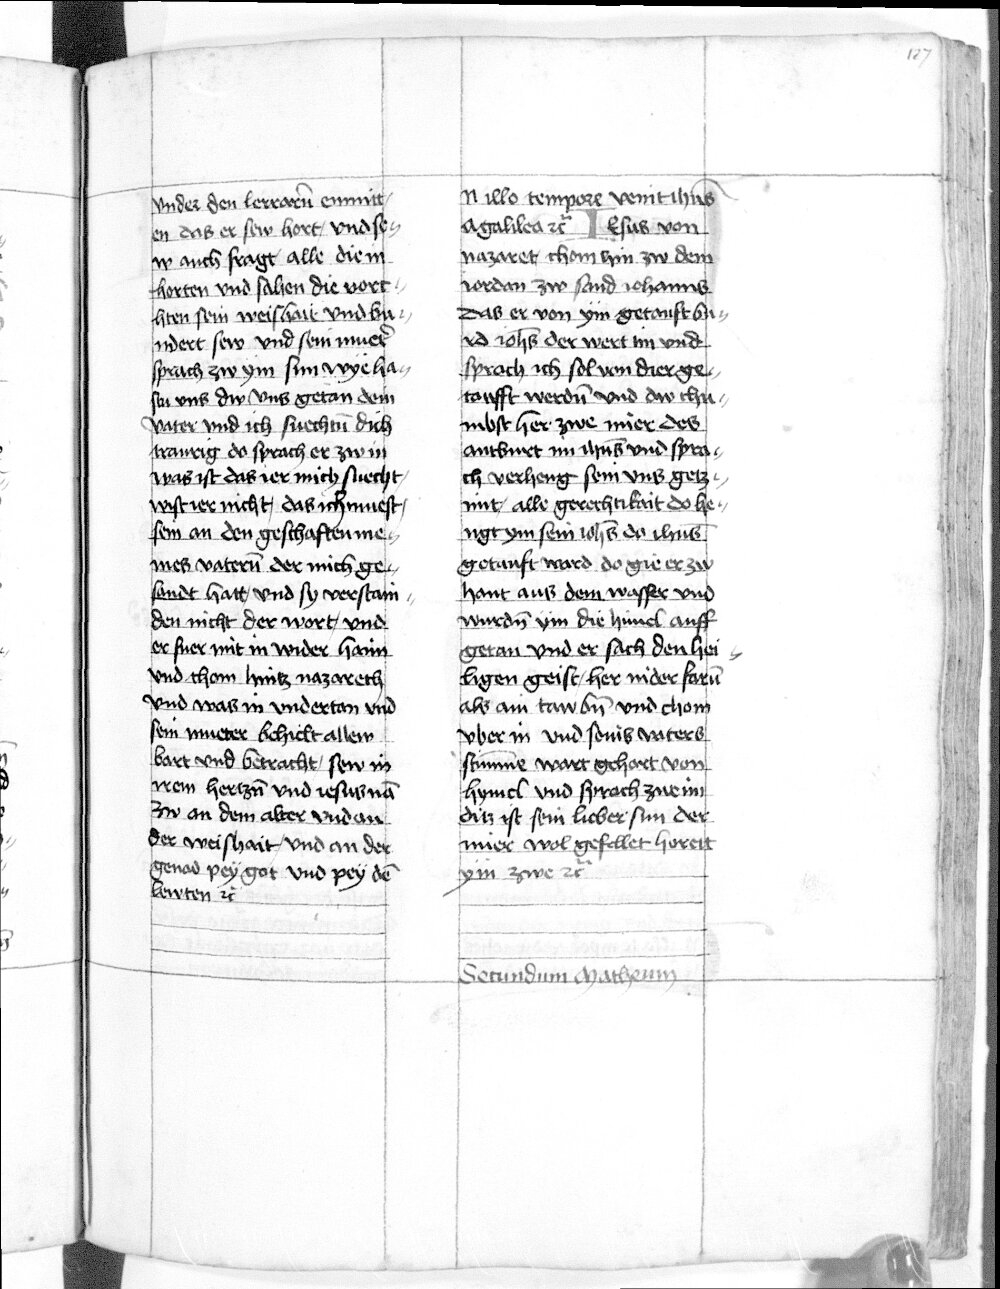 127
vnder den lerrarn̄ enmitt
en das er sew hort / vnd se //
w auch fragt / alle die in
horten vnd sahen die vort //
hten sein weishait vnd bu //
ndert sew vnd sein mueter
sprach zw ym sun wye ha //
stu vns dw vns getan dein
vater vnd ich suechtn̄ dich
traurig do sprach er zw in
was ist das ier mich suecht /
wist ier nicht / das ich muest /
sein an den geschaften me //
ines vatern̄ der mich ge //
sandt hatt / vnd sy verstain //
den nicht der wort / vnd
er fuer mit in wider haim
vnd chom hintz nazareth
vnd was in vndertan vnd
sein mueter behielt allew
bart vnd betracht / sew in
irem hertzn̄ vnd iesus nā
zw an dem alter vnd an
der weishait / vnd an der
genad pey got vnd pey dē
lewten ꝛc̄
N illo tempore venit ihūs
a galilea ꝛc̄ Iesus von
nazaret chom hin zw dem
iordan zw sand iohanns
das er von ym getauft bu //
rd ioh̄s der wert im vnd
sprach ich sol von dier ge //
taufft werdn̄ vnd dw chu //
mbst her zwe mier des
antburt im ihūs vnd spra //
ch verheng sein vns getz //
imt / alle gerechtikait do he //
ngt ym sein ioh̄s do ihūs
getauft ward do gie er zw
hant aus dem wasser vnd
wurdn̄ ym die himel auff
getan vnd er sach den hei //
ligen geist / her nider farn̄
als ain tawbn̄ vnd chom
vber in vnd seins vaters
stimme wart gehort von
hymel vnd sprach zwe im
ditz ist sein lieber sun der
mier wol gefellet horett
ym zwe ꝛc̄
Secundum Matheum